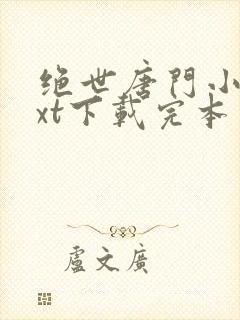 绝世唐門小
xt下載完本
盧文廣